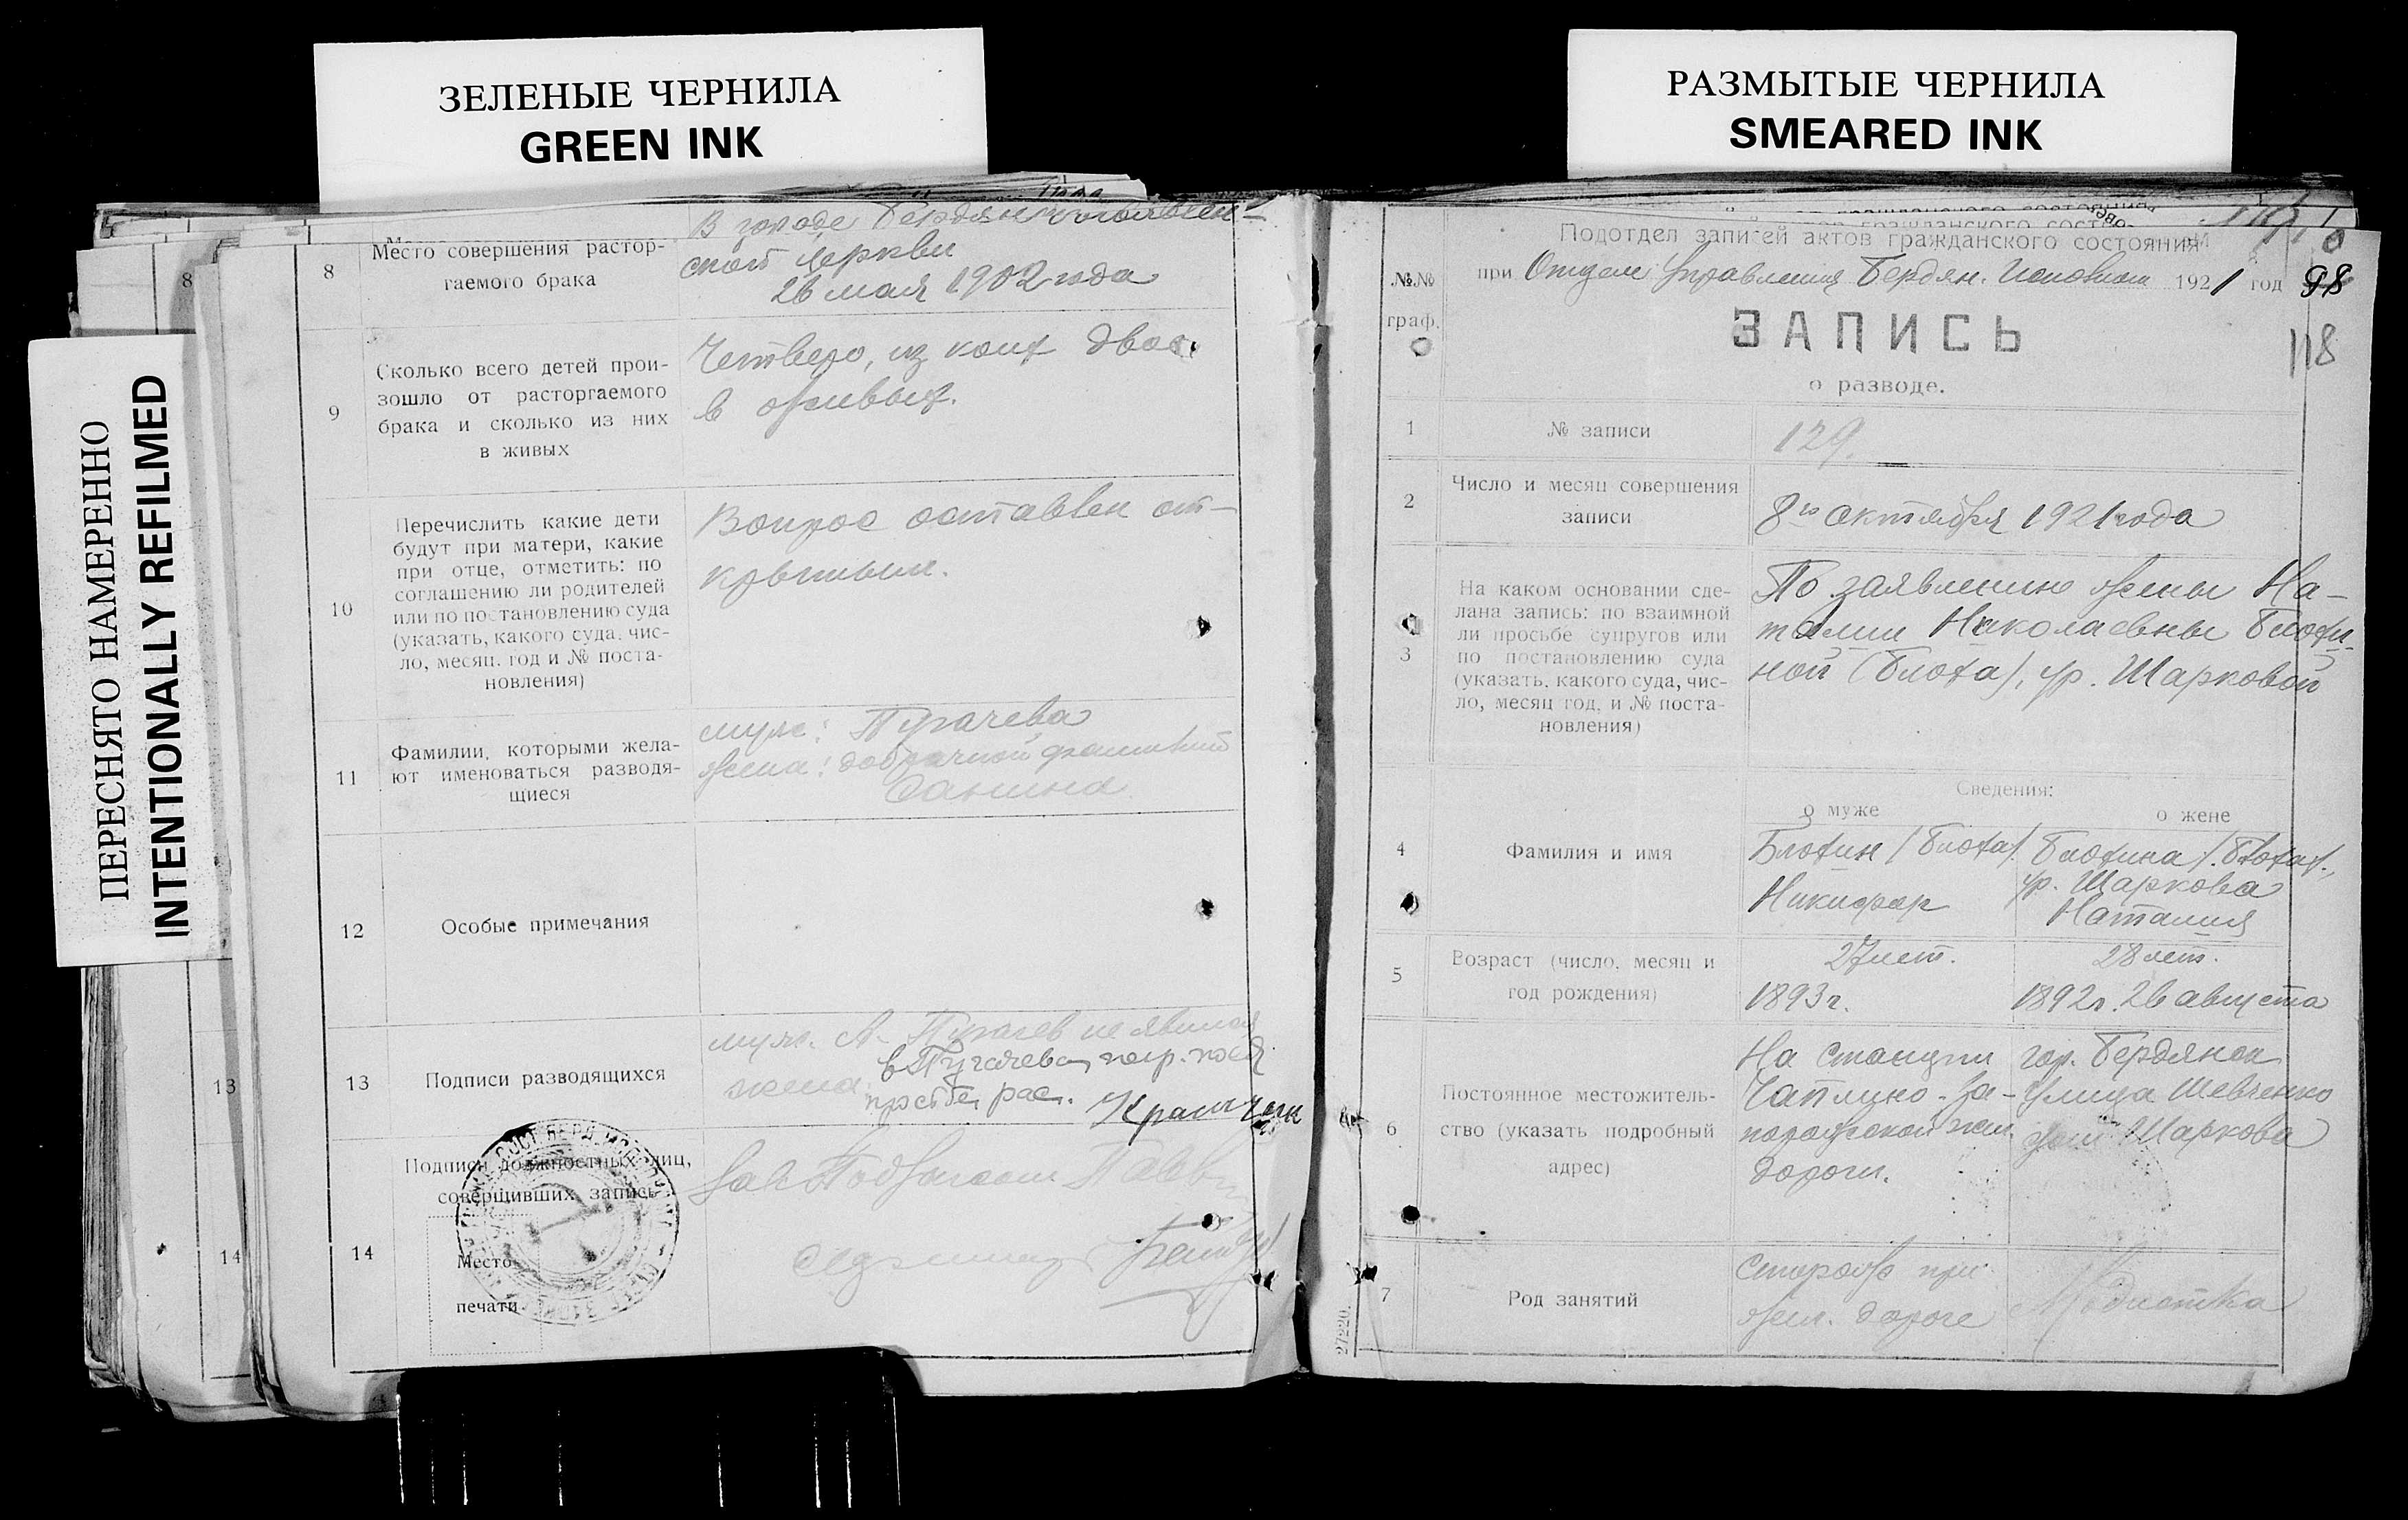 ЗЕЛЕНЫЕ ЧЕРНИЛА
GREEN INK
РАЗМЫТЫЕ ЧЕРНИЛА
SMEARED INK
ПЕРЕСНЯТО НАМЕРЕННО
INTENTIONALLY REFILMED
8
13
14
8
Место совершения растор-
гаемого брака
В городе
ской церкви
26 мая 1902 года
9
Сколько всего детей прои-
зошло от расторгаемого
брака и сколько из них
в живых
Четверо, из коих двое
в живых.
10
Перечислить какие дети
будут при матери, какие
при отце, отметить: по
соглашению ли родителей
или по постановлению суда
(указать, какого суда, чис-
ло, месяц, год и № поста-
новления)
Вопрос оставлен от-
крытым.
11
Фамилии, которыми жела-
ют именоваться разводя-
щиеся
муж: Пугачева
жена: добрачной фамилией
Санина
12
Особые примечания
13
Подписи разводящихся
муж. А. Пугачев не явился
жена:
14
Подписи должностных лиц,
совершивших запись
Место
печати
Зав. Подотделом
Подотдел записей актов гражданского состояния
№№
граф.
при Отделе Управления Бердян. Исполкома 1921 год
98
118
ЗАПИСЬ
о разводе.
1
№ записи
129.
2
Число и месяц совершения
записи
8го октября 1921 года
3
На каком основании сде-
лана запись: по взаимной
ли просьбе супругов или
по постановлению суда
(указать, какого суда, чис-
ло, месяц год, и № поста-
новления)
По заявлению жены На-
талии Николаевны Блохи-
ной (Блоха), ур. Шарковой
Сведения:
о муже
о жене
4
Фамилия и имя
Блохин /Блоха/.
Никифор
Блохина /.Блоха/.,
ур. Шаркова
Наталия
5
Возраст (число, месяц и
год рождения)
27 лет.
1893 г.
28 лет.
1892 г. 26 августа
6
Постоянное местожитель-
ство (указать подробный
адрес)
На станции
Чаплино-За-
порожской жел.
дороги.
гор. Бердянск
улица Шевченко
дом Шаркова
7
Род занятий
Сторож при
жел. дороге
Модистка
27220.